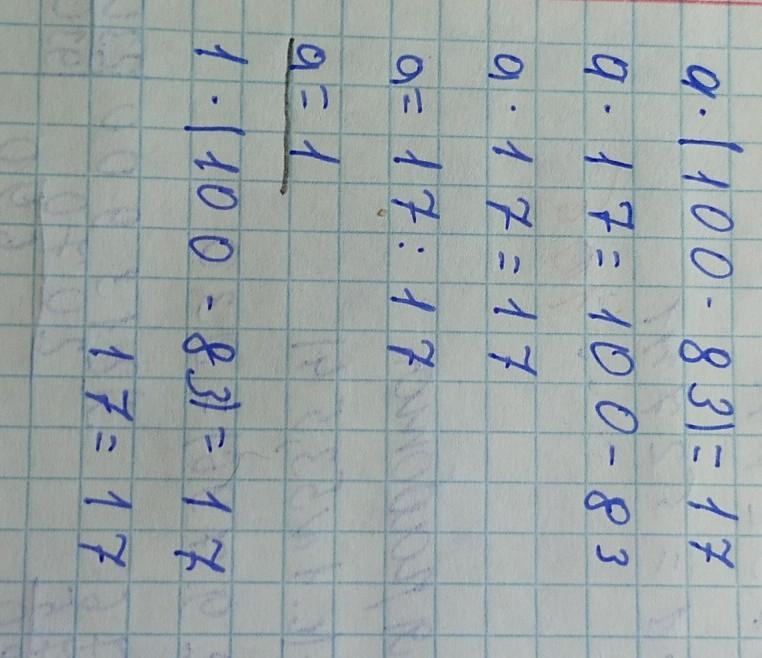 a · (100 - 83) = 17
a · 17 = 100 - 83
a · 17 = 17
a = 17 : 17
a = 1
1 · (100 - 83) = 17
17 = 17